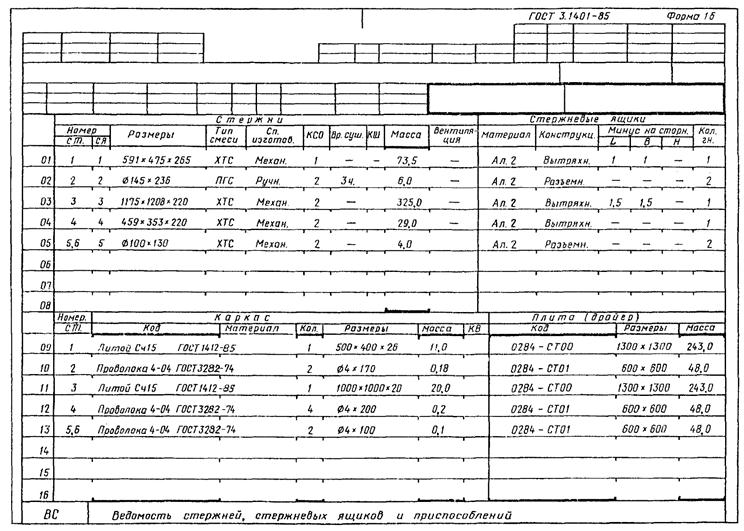 ГОСТ 3.1401-85 Форма 1б
Стержни Стержневые ящики
Номер Размеры Тип смеси Сп. изготов. КСО Вр. суш. КШ Масса Вентиляция Материал Конструкц. Минус на сторн. Кол. гн.
СТ. СЯ L В Н
01 1 1 591×475×265 ХТС Механ. 1 — — 73,5 — Ал. 2 Вытряхн. 1 1 — 1
02 2 2 Ø145×236 ПГС Ручн. 2 3ч. — 6,0 — Ал. 2 Разъемн. — — — 2
03 3 3 1175×1208×220 ХТС Механ. 2 — — 325,0 — Ал. 2 Вытряхн. 1,5 1,5 — 1
04 4 4 459×353×220 ХТС Механ. 2 — — 29,0 — Ал. 2 Вытряхн. — — — 1
05 5,6 5 Ø100×130 ХТС Механ. 2 — — 4,0 — Ал. 2 Разъемн. — — — 2
06
07
08
Номер. Каркас Плита (драйер)
СТ. Код Материал Кол. Размеры Масса КВ Код Размеры Масса
09 1 Литой Сч15 ГОСТ1412-85 1 500×400×26 11,0 0284-СТ00 1300×1300 243,0
10 2 Проволока 4-04 ГОСТ3282-74 2 Ø4×170 0,18 0284-СТ01 600×600 48,0
11 3 Литой Сч15 ГОСТ1412-85 1 1000×1000×20 20,0 0284-СТ00 1300×1300 243,0
12 4 Проволока 4-04 ГОСТ3282-74 4 Ø4×200 0,2 0284-СТ01 600×600 48,0
13 5,6 Проволока 4-04 ГОСТ3282-74 2 Ø4×100 0,1 0284-СТ01 600×600 48,0
14
15
16
ВС Ведомость стержней, стержневых ящиков и приспособлений